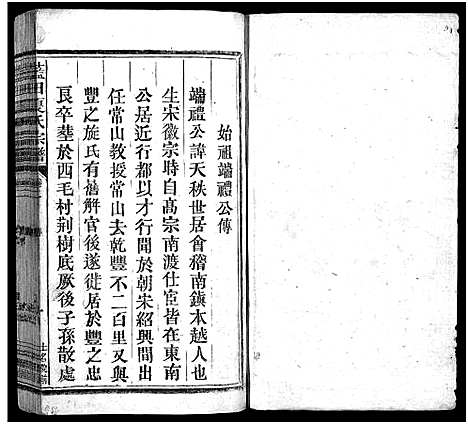 始祖端禮公傳
端禮公諱天秩世居會稽南鎮本越人也
生宋徽宗時自高宗南渡仕宦皆在東南
公居近行都以才行聞於朝宋紹興間出
任常山教授常山去乾豐不二百里又與
豐之施氏有舊解官後遂徙居於豐之忠
艮卒塟於西毛村荆樹底厥後子孫散處
藍田夏氏宗譜